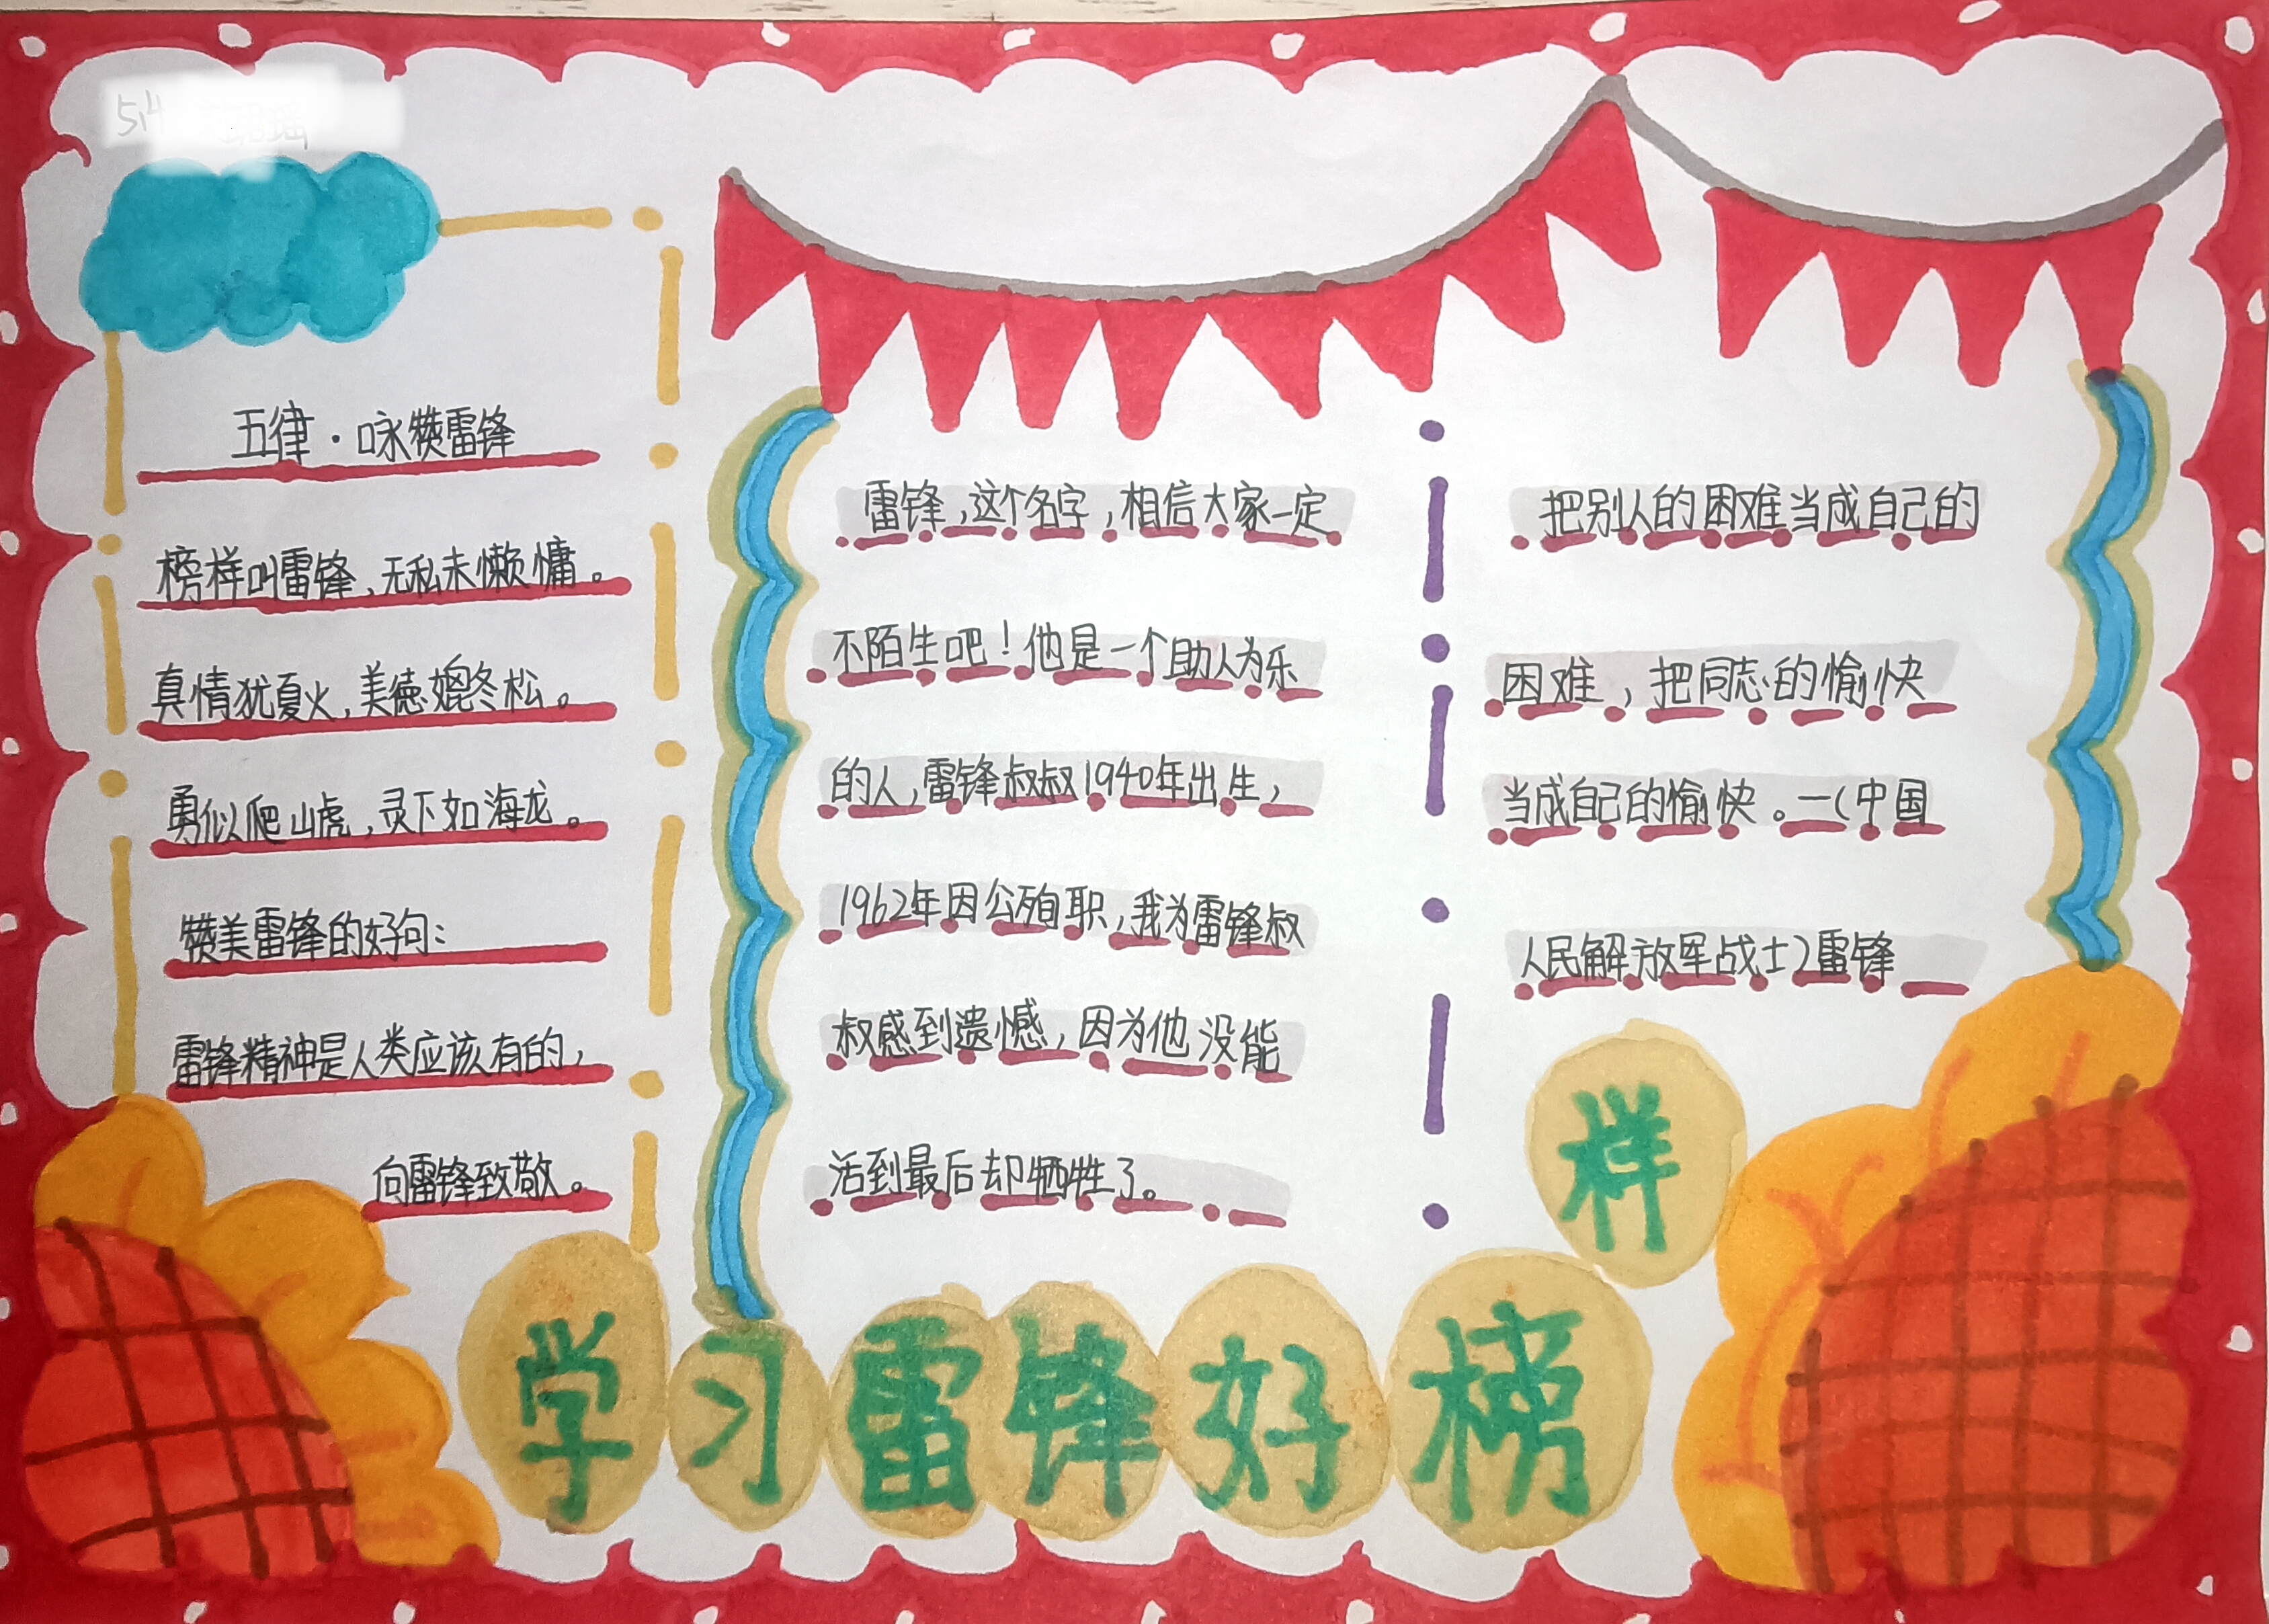 5.4
五律·咏赞雷锋
榜样叫雷锋,无私未懒慵。
真情犹夏火,美德媲冬松。
勇似爬山虎,灵下如海龙。
赞美雷锋的好句:
雷锋精神是人类应该有的,
向雷锋致敬。
雷锋,这个名字,相信大家一定
不陌生吧!他是一个助人为乐
的人,雷锋叔叔1940年出生,
1962年因公殉职,我为雷锋叔
叔感到遗憾,因为他没能
活到最后却牺牲了。
把别人的困难当成自己的
困难,把同志的愉快
当成自己的愉快。—(中国
人民解放军战士)雷锋
学习雷锋好榜样